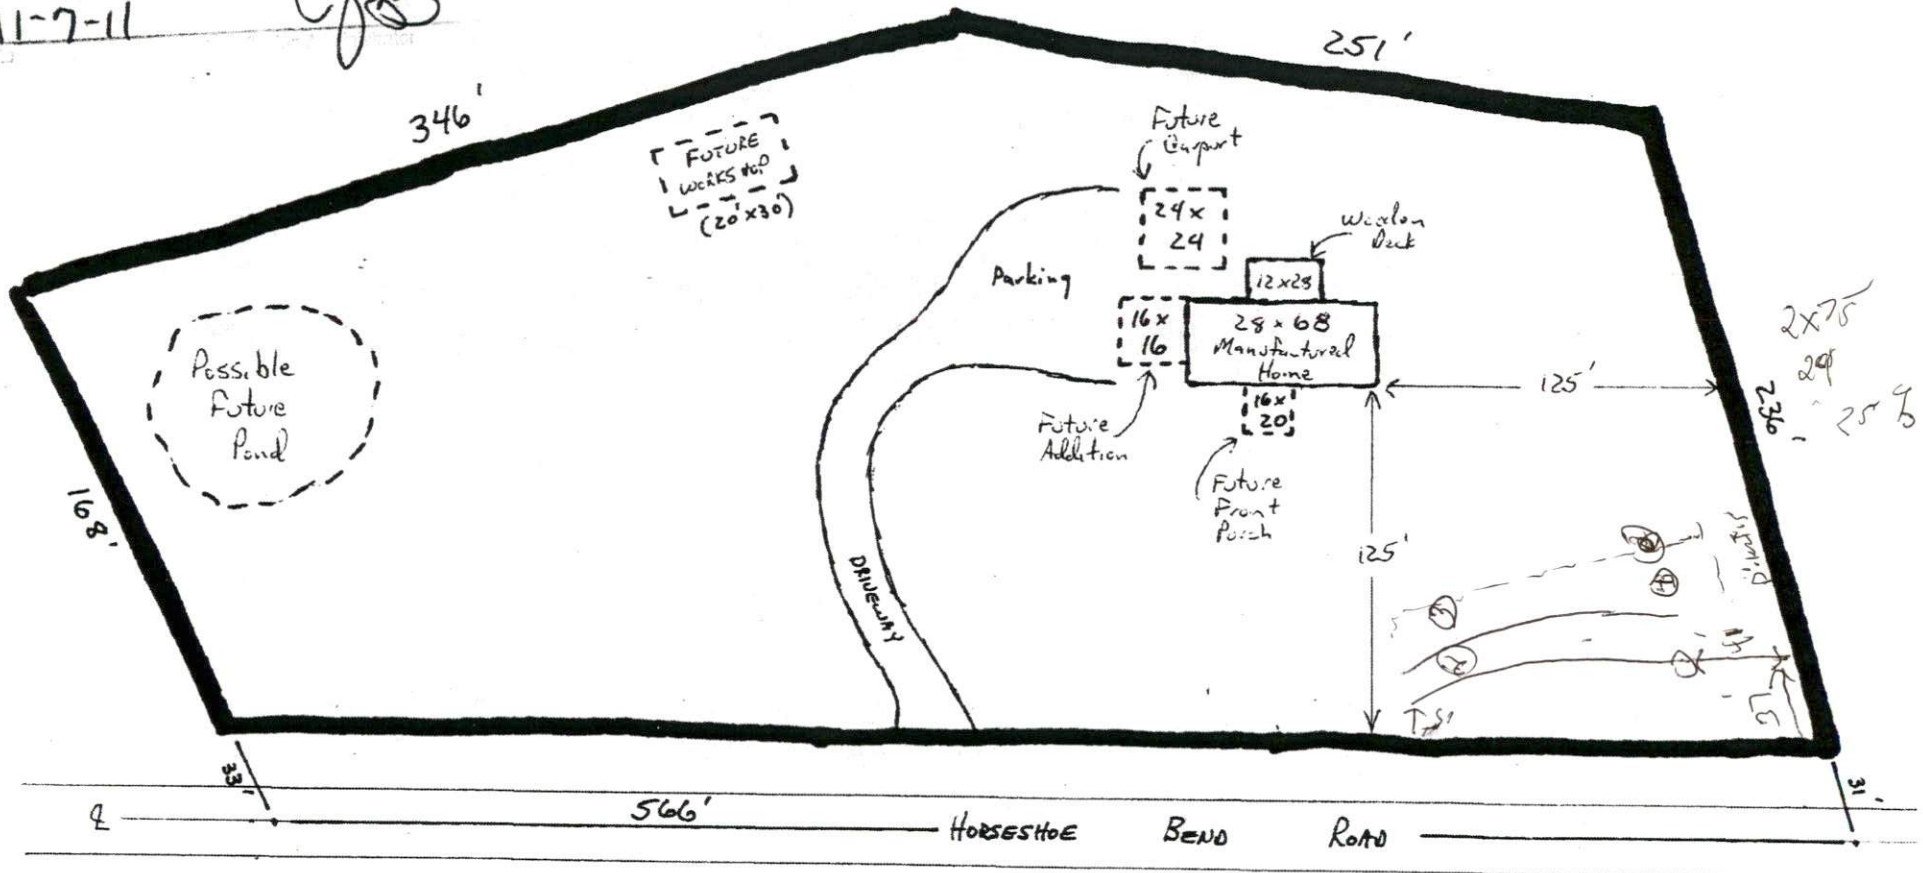 11-7-11
251'
346'
FUTURE
WORKSHOP
(20'x30')
Future
Carport
24x
24
Wooden
Deck
12x28
Parking
16x
16
28x68
Manufactured
Home
16x
20
Future
Addition
Future
Front
Porch
125'
125'
236'
2x75
25
Possible
Future
Pond
168'
DRIVEWAY
3
4
2
33'
31'
566'
HORSESHOE BEND ROAD